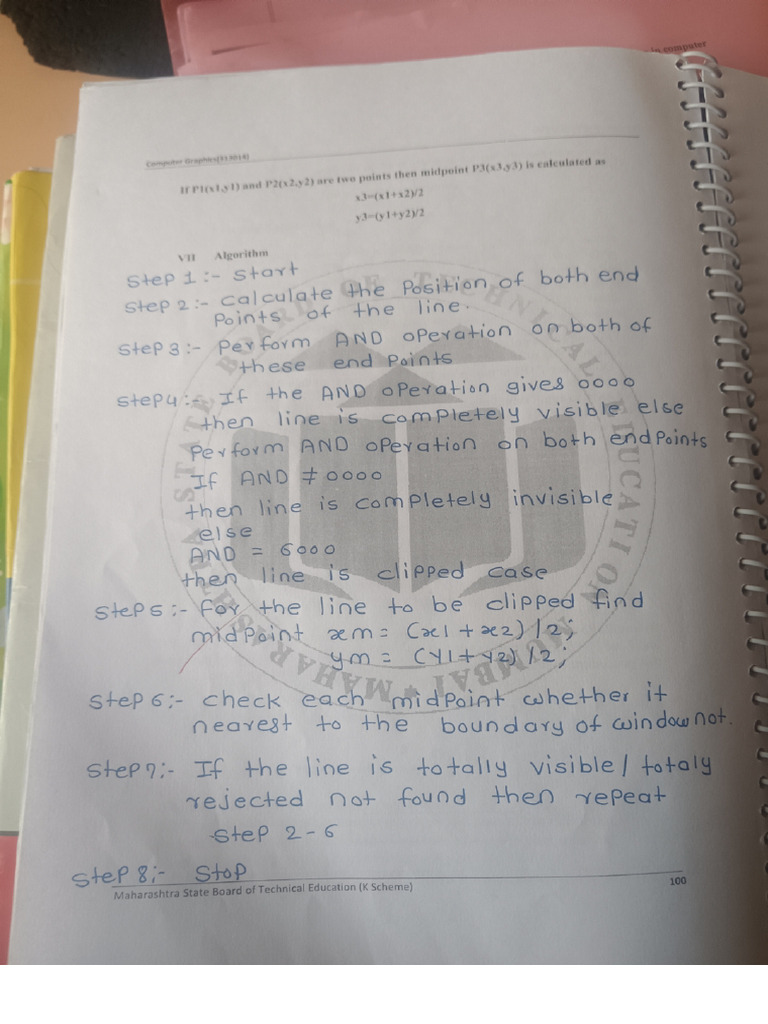 in computer
Computer Graphics(313001)
If P1(x1,y1) and P2(x2,y2) are two points then midpoint P3(x3,y3) is calculated as
x3=(x1+x2)/2
y3=(y1+y2)/2
VII Algorithm
Step 1 :- Start
Step 2 :- Calculate the Position of both end
Points of the line.
Step 3 :- Perform AND operation on both of
these end Points
Step 4 :- If the AND operation gives 0000
then line is completely visible else
Perform AND operation on both endPoints
If AND ≠ 0000
then line is completely invisible
else
AND = 6000
then line is clipped case
Step 5 :- for the line to be clipped find
midPoint xm = (x1 + x2) / 2;
ym = (Y1 + Y2) / 2;
Step 6 :- check each midPoint whether it
nearest to the boundary of window not.
Step 7 :- If the line is totally visible / totaly
rejected not found then repeat
Step 2 - 6
Step 8 :- Stop
Maharashtra State Board of Technical Education (K Scheme)
100
MAHARASHTRA STATE BOARD OF TECHNICAL EDUCATION
MUMBAI